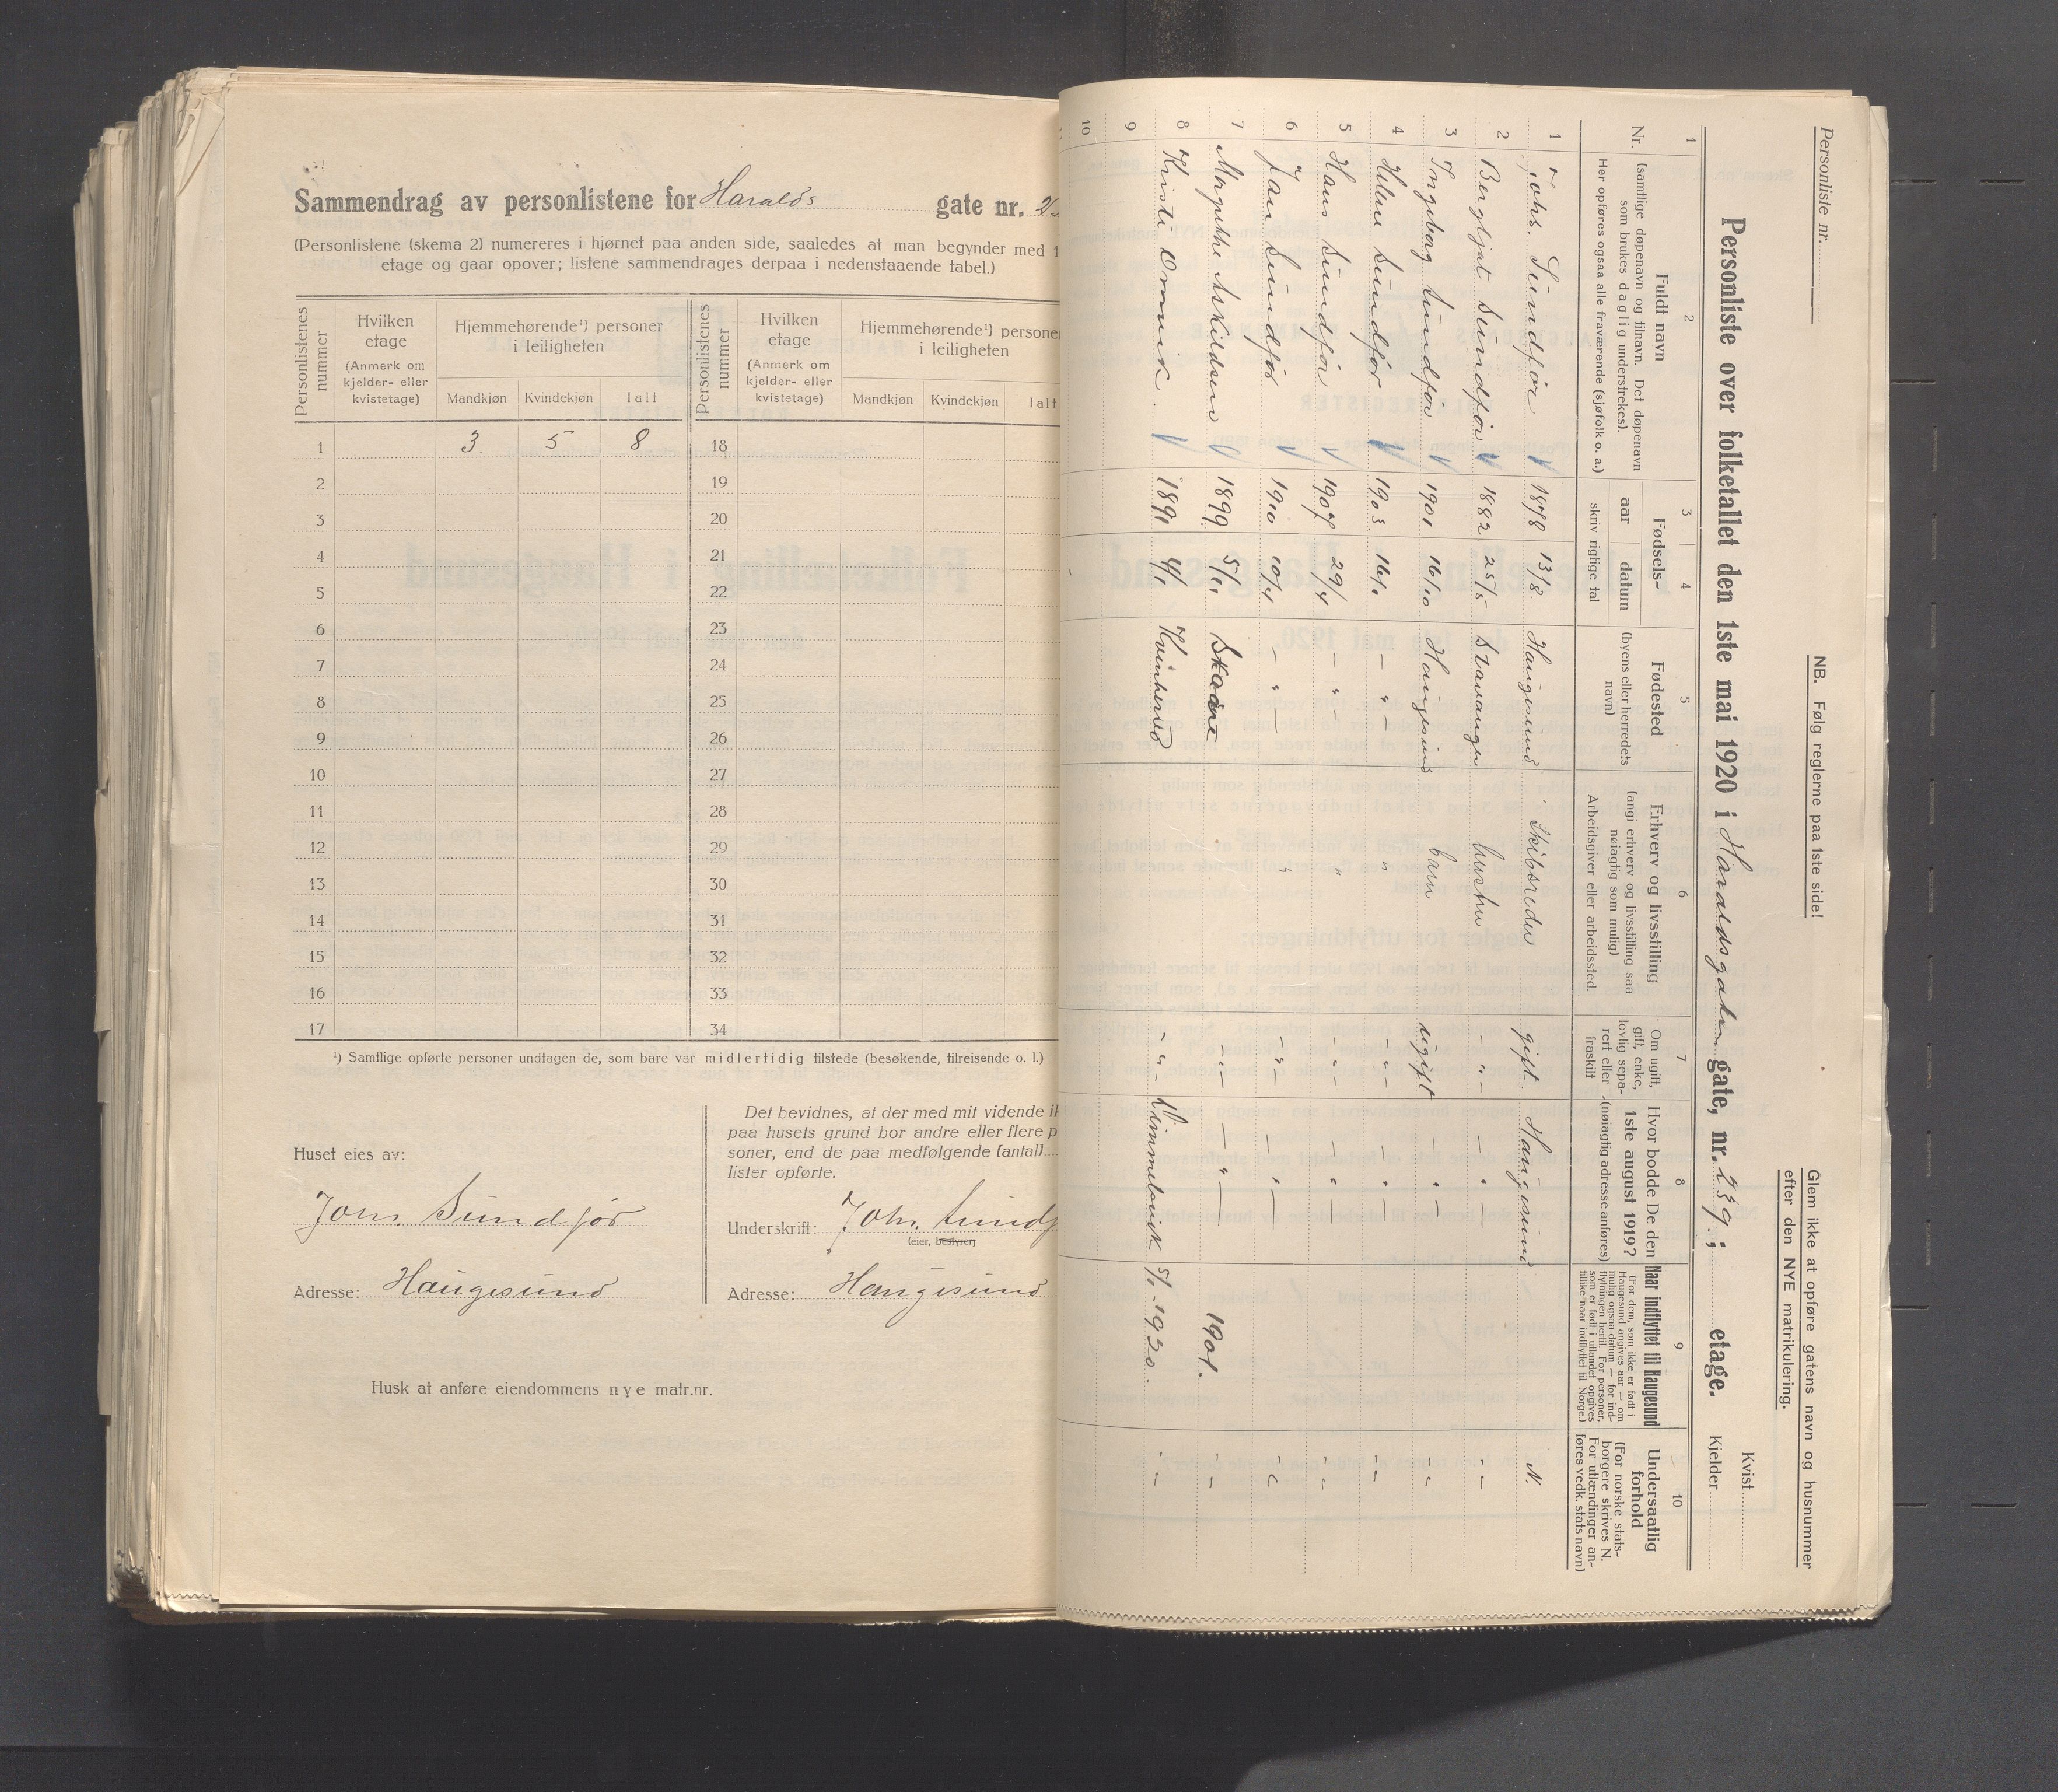 Sammendrag av personlistene for Haralds gate nr.
(Personlistene (skema 2) numereres i hjørnet paa anden side, saaledes at man begynder med 1
etage og gaar opover; listene sammendrages derpaa i nedenstaaende tabel.)
Personlistenes nummer
Hvilken etage
(Anmerk om kjelder- eller kvistetage)
Hjemmehørende¹) personer i leiligheten
Mandkjøn Kvindekjøn Ialt
Personlistenes nummer
Hvilken etage
(Anmerk om kjelder- eller kvistetage)
Hjemmehørende¹) persone
i leiligheten
Mandkjøn Kvindekjøn Ialt
1 3 5 8 18
2 19
3 20
4 21
5 22
6 23
7 24
8 25
9 26
10 27
11 28
12 29
13 30
14 31
15 32
16 33
17 34
¹) Samtlige opførte personer undtagen de, som bare var midlertidig tilstede (besøkende, tilreisende o. l.)
Huset eies av:
Johs. Sundfør
Adresse: Haugesund
Det bevidnes, at der med mit vidende ik
paa husets grund bor andre eller flere p
soner, end de paa medfølgende (antal)
lister opførte.
Underskrift: Johs. Sundf
(eier, bestyrer)
Adresse: Haugesund
Husk at anføre eiendommens nye matr.nr.
Personliste nr.
NB. Følg reglerne paa 1ste side!
Glem ikke at opføre gatens navn og husnummer
efter den NYE matrikulering.
Personliste over folketallet den 1ste mai 1920 i Haraldsgaten gate, nr. 239; etage.
Kvist
Kjelder
1 2 3 4 5 6 7 8 9 10
Nr.
Fuldt navn
(samtlige døpenavn og tilnavn. Det døpenavn
som brukes daglig understrekes).
Her opføres ogsaa alle fraværende (sjøfolk o. a.)
Fødsels-
aar datum
skriv rigtige tal
Fødested
(byens eller herredets navn)
Erhverv og livsstilling
(angi erhverv og livsstilling saa
nøiagtig som mulig)
Arbeidsgiver eller arbeidssted.
Om ugift,
gift, enke,
lovlig sepa-
rert eller
fraskilt
Hvor bodde De den
1ste august 1919?
(nøiagtig adresse anføres)
Naar indflyttet til Haugesund
(For dem, som ikke er født i
Haugesund angives aar — om
mulig ogsaa datum — for ind-
flytningen hertil. For personer,
som er født i utlandet opgives
tillike naar indflyttet til Norge.)
Undersaatlig
forhold
(For norske stats-
borgere skrives N.
For utlændinger an-
føres vedk. stats navn)
1 Johs. Sundfør 1878 13/8 Haugesund Skibsreder gift Haugesund N.
2 Bergljot Sundfør 1882 25/5 Stavanger hustru - " - - " - - " -
3 Ingeborg Sundfør 1901 16/10 Haugesund barn ugift - " - - " -
4 Helene Sundfør 1903 16/1 - " - " - " - - " - - " -
5 Hans Sundfør 1907 29/4 - " - " - " - - " - - " -
6 Jan Sundfør 1910 10/4 - " - " - " - - " - - " -
7 Margrethe Askildsen 1899 5/11 Skaare - " - - " - 1901. - " -
8 Kristi Omvik. 1891 4/1 Kvinherred - " - 5/1-1920. - " -
9
10